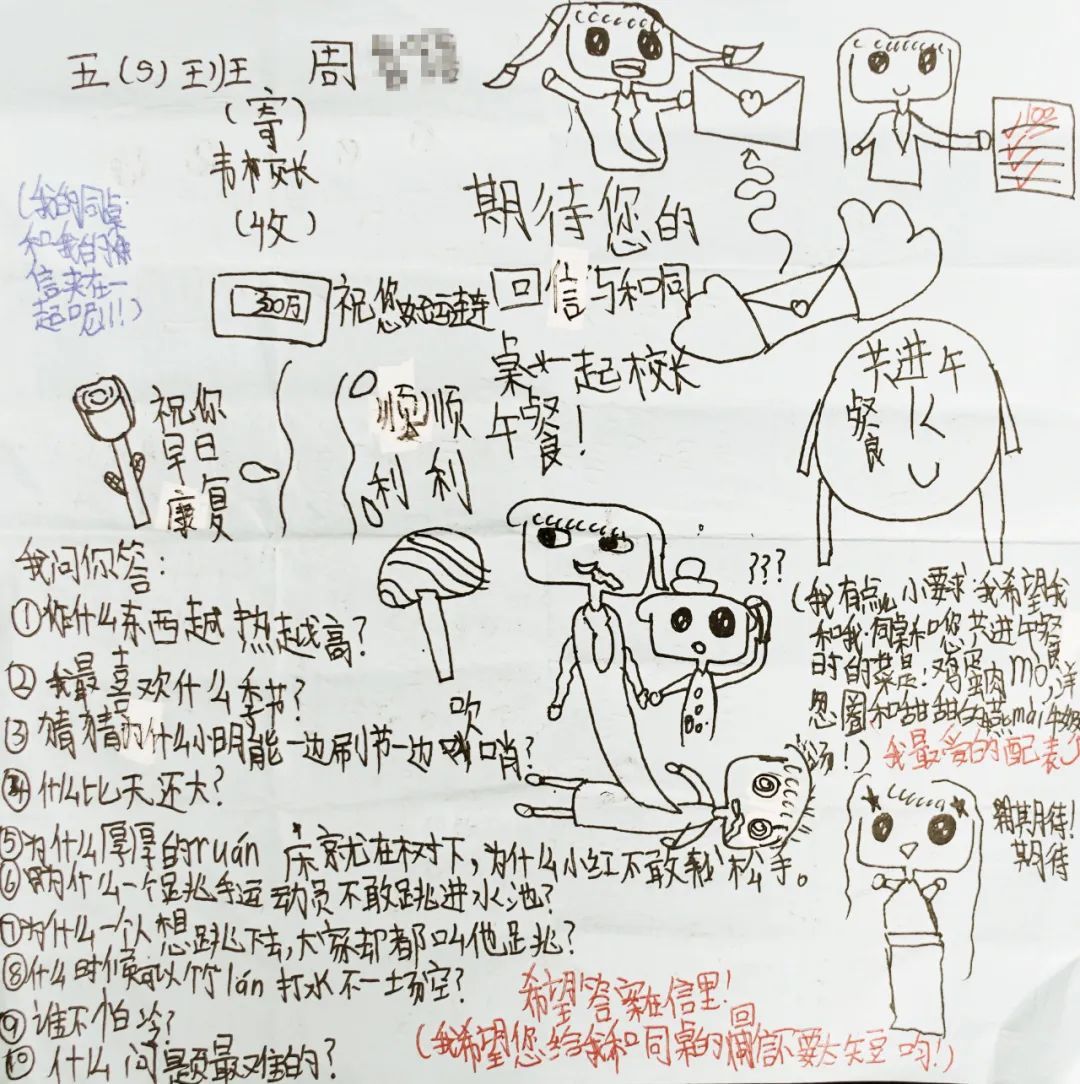 五(9)班 周
(寄)
韦校长
(收)
(我的同桌
和我的
信夹在一
起呢!!!)
100
期待您的
回信与和同
桌一起校长
午餐!
500万
祝您好运连连
祝你
早日
康复
顺顺
利利
共进午
餐
我问你答:
①什么东西越热越高?
②我最喜欢什么季节?
③猜猜为什么小明能一边刷牙一边吹哨?
④什么比天还大?
⑤为什么厚厚的ruán 床就在树下,为什么小红不敢松手。
⑥为什么一个跳水运动员不敢跳进水池?
⑦为什么一个人想跳下去,大家却都叫他跳?
⑧什么时候可以竹lán打水不一场空?
⑨谁不怕冷?
⑩什么问题最难的?
???
(我有点小要求:我希望我
和我同桌和您共进午餐
时的菜是:鸡蛋肉mo,洋
葱圈和甜甜的燕mài牛奶
汤!)
我最爱的配表
期待!
期待
希望答案在信里!
(我希望您给我和同桌的回信不要太短哟!)